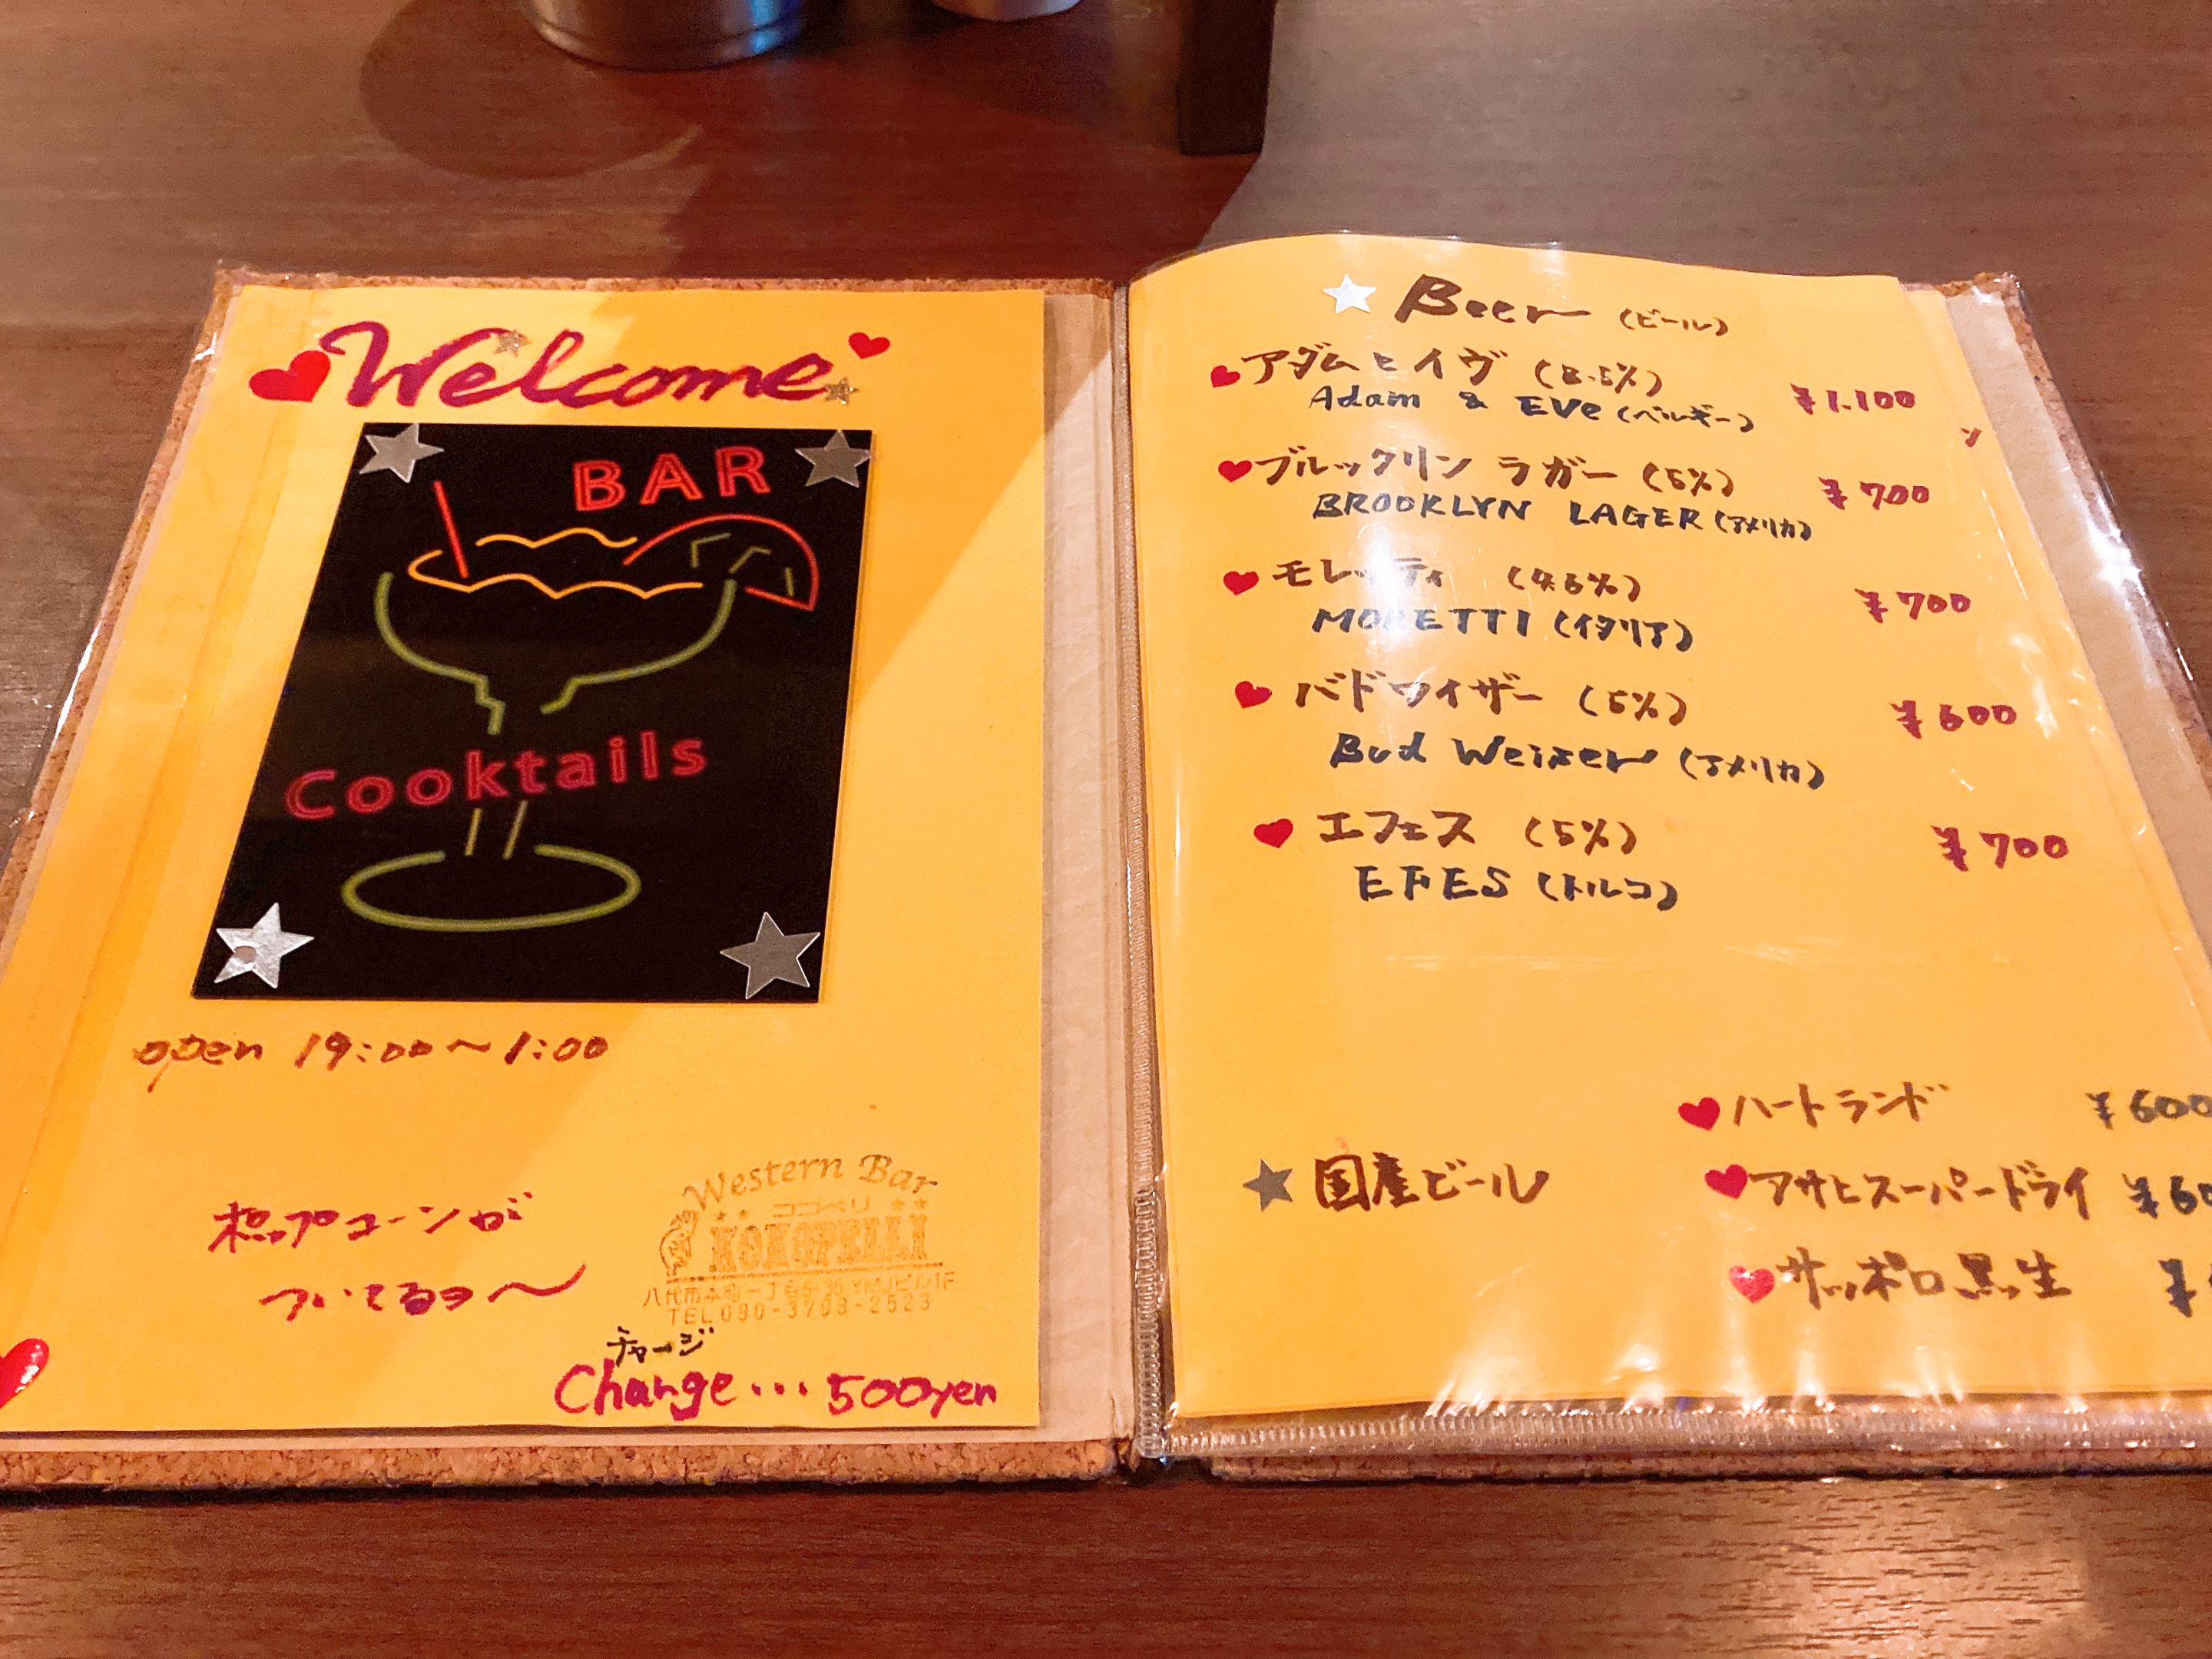 Welcome
BAR
Cooktails
open 19:00～1:00
ポップコーンが
ついてるヨ～
Western Bar
ココペリ
KOKOPELLI
八代市本町一丁目5-36 YMJビル1F
TEL 090-3798-2523
チャージ
Change…500yen
Beer (ビール)
アダムとイヴ (8.5%)
Adam & EVe (ベルギー) ¥1.100
ブルックリン ラガー (5%) ¥700
BROOKLYN LAGER (アメリカ)
モレッティ (4.6%) ¥700
MORETTI (イタリア)
バドワイザー (5%) ¥600
Bud Weiser (アメリカ)
エフェス (5%) ¥700
EFES (トルコ)
ハートランド ¥600
国産ビール
アサヒスーパードライ ¥60
サッポロ黒生 ¥